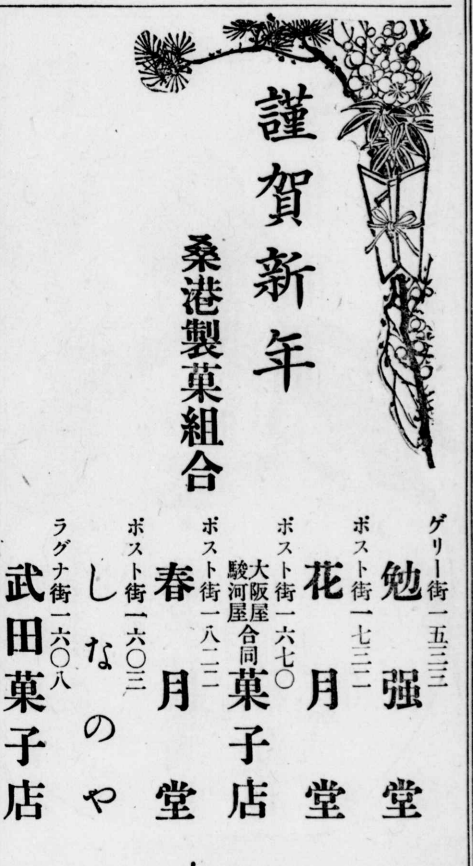 謹賀新年
桑港製菓組合
ゲリー街一五三三
勉强堂
ポスト街一七三二
花月堂
ポスト街一六七〇
大阪屋
駿河屋
合同菓子店
ポスト街一八二二
春月堂
ポスト街一六〇三
しなのや
ラグナ街一六〇八
武田菓子店